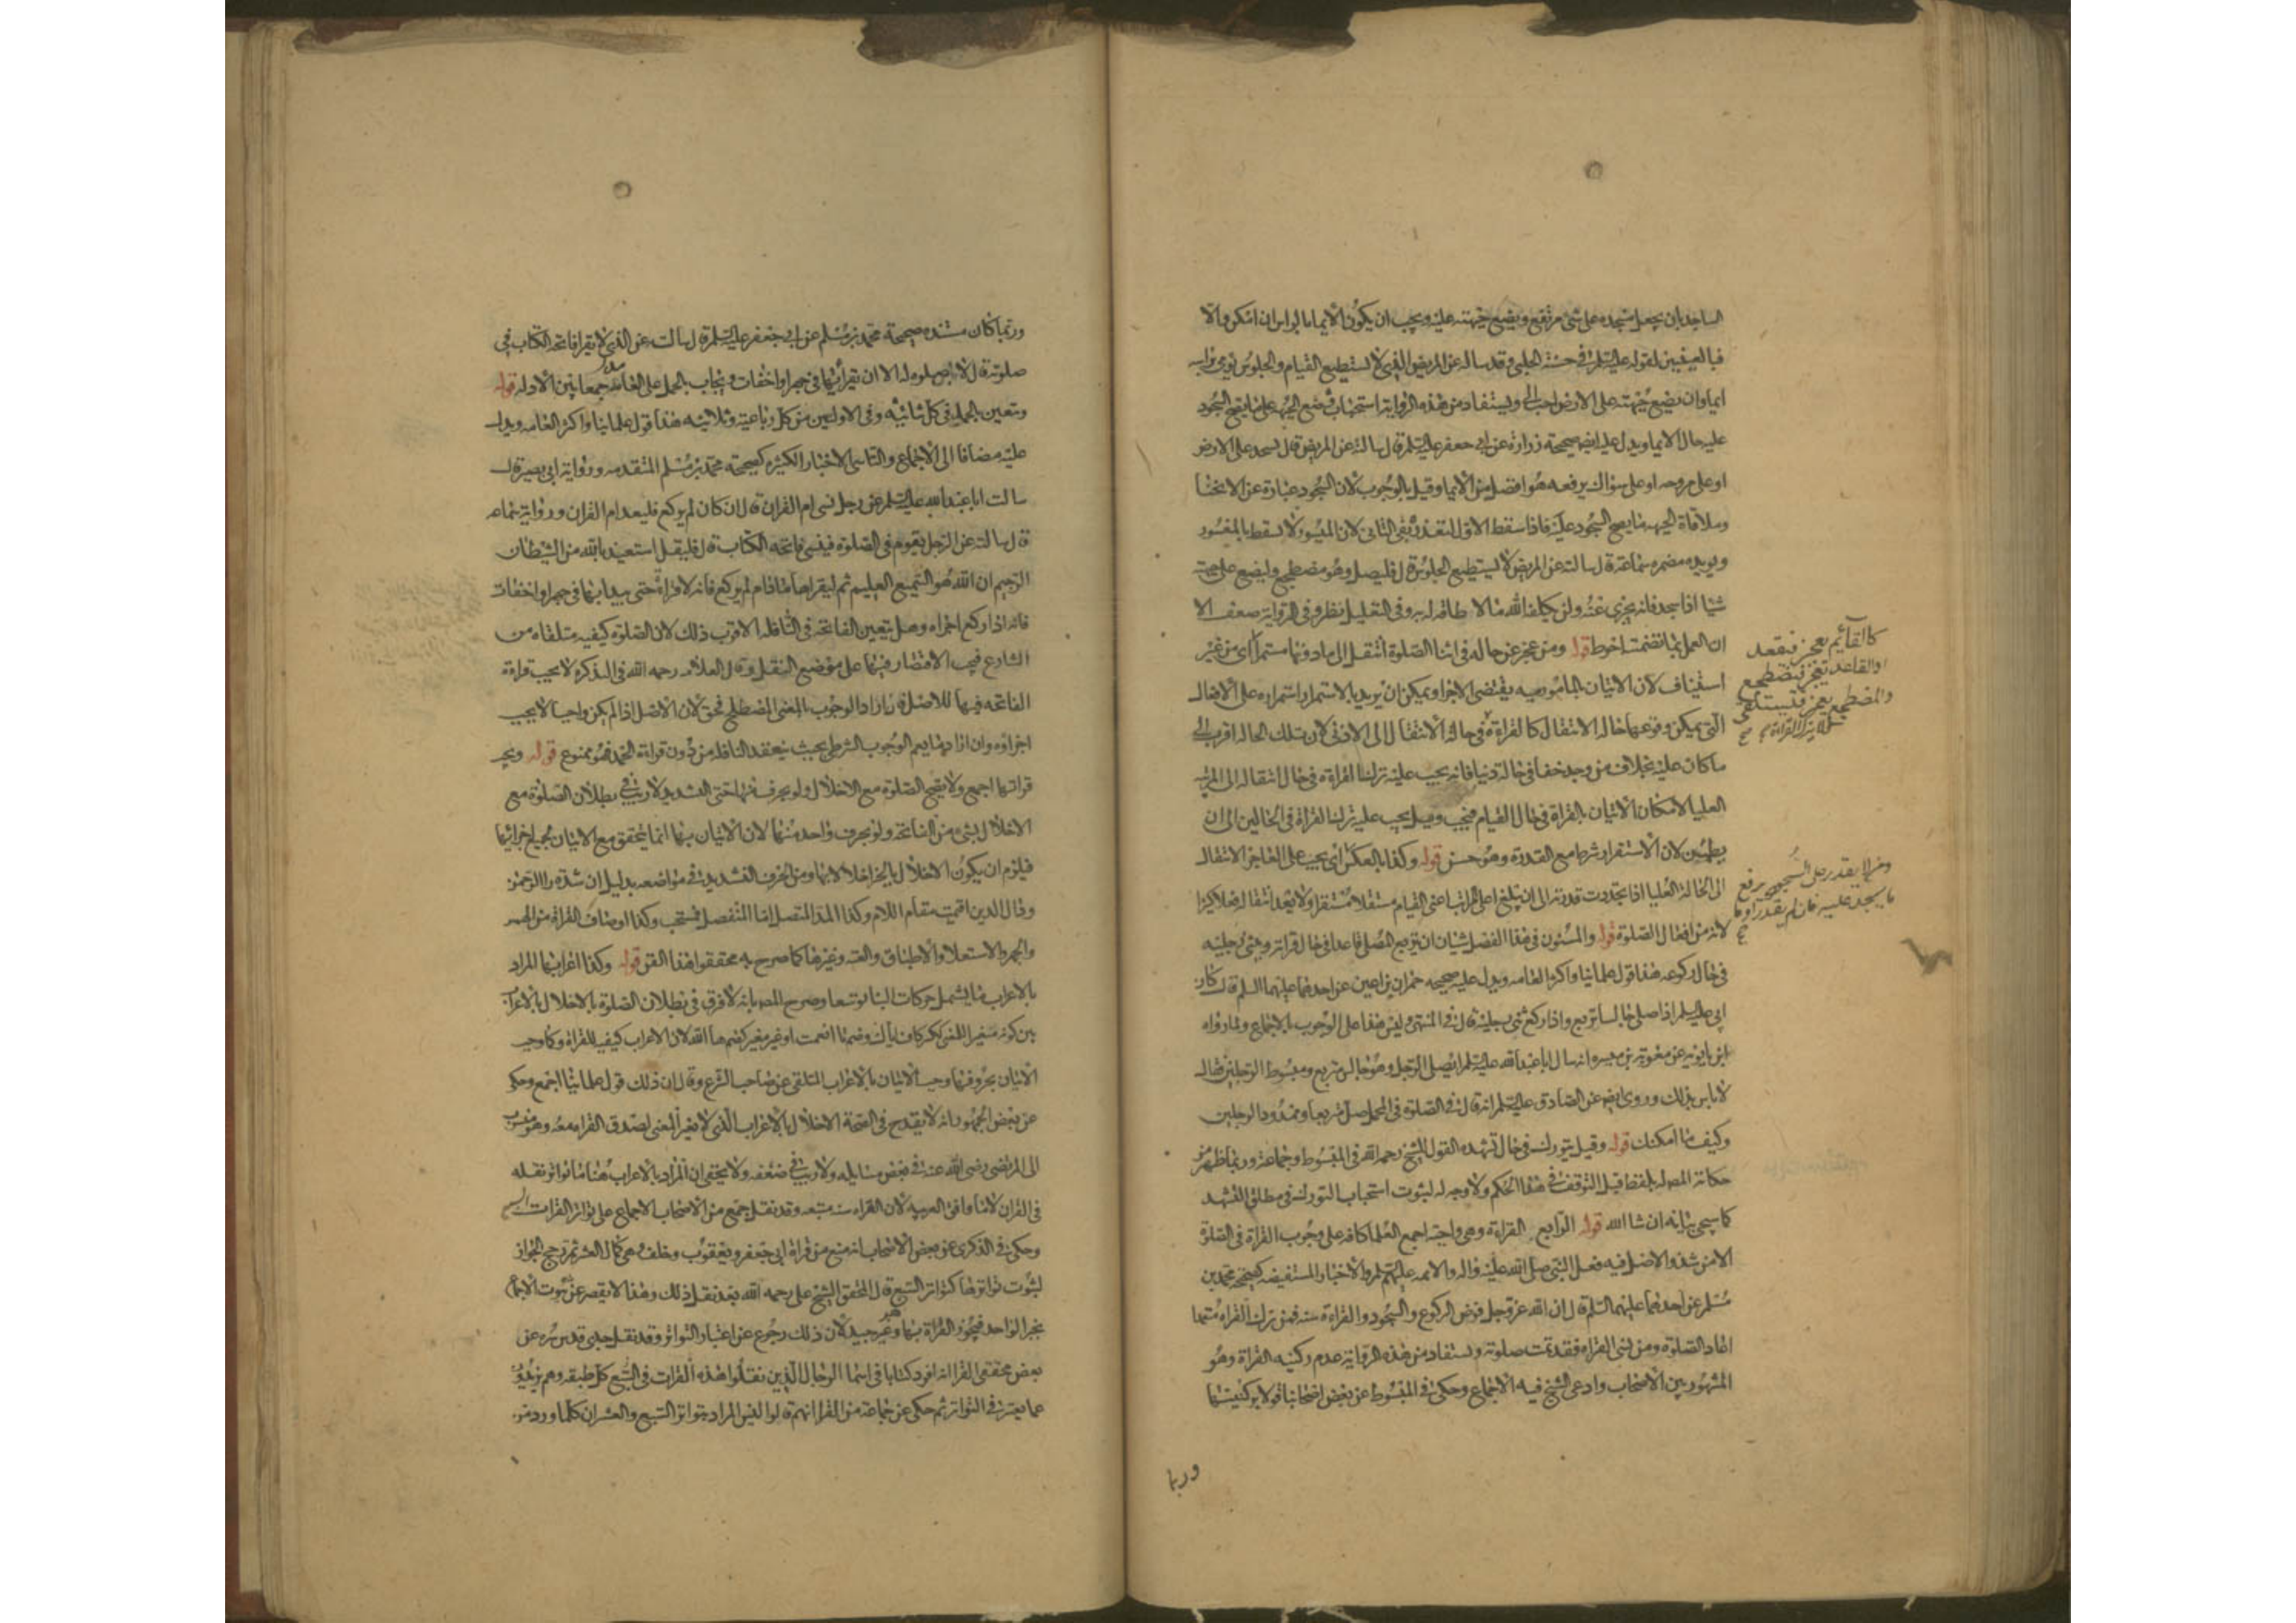 الساجد بان يجعل مسجده على شئ مرتفع ويضع جبهته عليه ويجب ان يكون الايما بالراس ان امكن والا
فبالعينين لقوله عليه السلم في حسنة الحلبي وقد ساله عن المريض الذي لا يستطيع القيام والجلوس يومي براسه
ايما وان يضع جبهته على الارض احب الى ويستفاد من هذه الرواية استحباب وضع الجبهة على ما يصح السجود
عليه حال الايما ويدل عليه ايضه صحيحة زرارة عن ابي جعفر عليه السلم قال سالته عن المريض قال يسجد على الارض
او على مروحه او على سواك يرفعه هو افضل من الايما وقيل بالوجوب لان السجود عبارة عن الانحنا
وملاقاة الجبهه ما يصح السجود عليه فاذا سقط الاول لتعذره بقى الثانى لان الميسور لا يسقط بالمعسور
ويويده مضمره سماعة قال سالته عن المريض لا يستطيع الجلوس قال فليصل وهو مضطجع وليضع على جبهته
شيا اذا سجد فانه يجزى عنه ولن يكلف الله ما لا طاقه له به وفى التعليل نظر وفى الرواية ضعف الا
ان العمل بما تضمنته احوط قوله ومن عجز عن حاله فى اثنا الصلوة انتقل الى ما دونها مستمرا اى من غير
استيناف لان الاتيان بالمامور به يقتضى الاجزا ويمكن ان يريد بالاستمرار استمراره على الافعال
التى يمكن وقوعها حاله الانتقال كالقراءة فى حالة الانتقال الى الادنى لان تلك الحاله اقرب الى
ما كان عليه بخلاف من وجد خفا فى حالة دنيا فانه يجب عليه ترك القراءة فى حال انتقاله الى المرتبه
العليا لامكان الاتيان بالقراة فى حال القيام فيجب وقيل يجب عليه ترك القراة فى الحالين الى ان
يطمئن لان الاستقرار شرط مع القدرة وهو حسن قوله وكذا بالعكس اى يجب على العاجز الانتقال
الى الحالة العليا اذا تجددت قدرته الى ان يبلغ اعلى المراتب اعنى القيام مستقلا مستقرا ولا يعد انتقاله فعلا كثيرا
لانه من افعال الصلوة قوله والمسنون فى هذا الفصل شيئان ان يتربع المصلى قاعدا فى حال قراته ويثنى رجليه
فى حال ركوعه هذا قول علمائنا واكثر العامه ويدل عليه صحيحه حمران بن اعين عن احدهما عليهما السلم قال كان
ابى عليه السلم اذا صلى جالسا تربع واذا ركع ثنى رجليه قال فى المنتهى وليس هذا على الوجوب بالاجماع وبما رواه
ابن بابويه عن معويه بن ميسره انه سال ابا عبد الله عليه السلم ايصلى الرجل وهو جالس متربع ومبسوط الرجلين فقال
لا باس بذلك وروى ايضه عن الصادق عليه السلم انه قال فى الصلوة فى المحمل صل متربعا وممدود الرجلين
وكيف ما امكنك قوله وقيل يتورك فى حال تشهده القول للشيخ رحمه الله فى المبسوط وجماعة وربما ظهر من
حكاية المصه له بلفظ قيل التوقف فى هذا الحكم ولا وجه له لثبوت استحباب التورك فى مطلق التشهد
كما سيجى بيانه ان شا الله قوله الرابع القراءة وهى واجبة اجمع العلما كافه على وجوب القراة فى الصلوة
الا من شذ والاصل فيه فعل النبى صلى الله عليه واله والائمه عليهم السلم والاخبار المستفيضه كصحيحة محمد بن
مسلم عن احدهما عليهما السلم قال ان الله عز وجل فرض الركوع والسجود والقراءة سنه فمن ترك القراءة متعمدا
اعاد الصلوة ومن نسى القراءه فقد تمت صلوته ويستفاد من هذه الرواية عدم ركنيه القراة وهو
المشهور بين الاصحاب وادعى الشيخ فيه الاجماع وحكى فى المبسوط عن بعض اصحابنا قولا بركنيتها
كالقائم يعجز فيقعد
او القاعد يعجز فيضطجع
والمضطجع يعجز فيستلقى
ومن لا يقدر على السجود يرفع
ما يسجد عليه فان لم يقدر اومأ
وربما
وربما كان مستنده صحيحة محمد بن مسلم عن ابى جعفر عليه السلم قال سالته عن الذى لا يقرا فاتحة الكتاب فى
صلوته قال لا صلوه له الا ان يقرأ بها فى جهر او اخفات ويجاب بالحمل على العامد جمعا بين الادله قوله
ويتعين بالحمد فى كل ثنائيه وفى الاوليين من كل رباعية وثلاثيه هذا قول علمائنا واكثر العامه ويدل
عليه مضافا الى الاجماع والتاسى الاخبار الكثيره كصحيحة محمد بن مسلم المتقدمه ورواية ابى بصير قال
سالت ابا عبد الله عليه السلم عن رجل نسى ام القران قال ان كان لم يركع فليعد ام القران ورواية سماعه
قال سالته عن الرجل يقوم فى الصلوة فينسى فاتحه الكتاب قال فليقل استعيذ بالله من الشيطان
الرجيم ان الله هو السميع العليم ثم ليقراها ما دام لم يركع فانه لا قراة حتى يبدا بها فى جهر او اخفات
فانه اذا ركع اجزاه وهل يتعين الفاتحة فى النافله الاقرب ذلك لان الصلوة كيفيه متلقاه من
الشارع فيجب الاقتصار فيها على موضع النقل وقال العلامه رحمه الله فى التذكره لا يجب قراءة
الفاتحه فيها للاصل فان اراد الوجوب بالمعنى المصطلح فحق لان الاصل اذا لم يكن واجبا لا يجب
اجزاؤه وان اراد ما يعم الوجوب الشرطى بحيث ينعقد النافله من دون قراءة الحمد فهو ممنوع قوله ويجب
قراتها اجمع ولا يصح الصلوة مع الاخلال ولو بحرف منها حتى التشديد لا ريب فى بطلان الصلوة مع
الاخلال بشئ من الفاتحة ولو بحرف واحد منها لان الاتيان بها انما يتحقق مع الاتيان بجميع اجزائها
فيلزم ان يكون الاخلال بالجزء اخلالا بها ومن الحرف التشديد فى مواضعه بدليل ان شدة را الرحمن
ودال الدين اقيمت مقام اللام وكذا المد المتصل اما المنفصل فمستحب وكذا اوصاف القراة من الهمس
والجهر والاستعلا والاطباق والغنه وغيرها كما صرح به محققوا هذا الفن قوله وكذا اعرابها المراد
بالاعراب ما يشمل حركات البنا توسعا وصرح المصه بانه لا فرق فى بطلان الصلوة بالاخلال بالاعراب
بين كونه مغيرا للمعنى ككسر كاف اياك وضم تا انعمت او غير مغير كضم ها الله لان الاعراب كيفيه للقراة وكما وجب
الاتيان بحروفها وجب الاتيان بالاعراب المتلقى عن صاحب الشرع وقال ان ذلك قول علمائنا اجمع وحكى
عن بعض الجمهور انه لا يقدح فى الصحة الاخلال بالاعراب الذى لا يغير المعنى لصدق القراة معه وهو منسوب
الى المرتضى رضى الله عنه فى بعض مسايله ولا ريب فى ضعفه ولا يخفى ان المراد بالاعراب هنا ما تواتر نقله
فى القران لا ما وافق العربيه لان القراءه سنه متبعه وقد نقل جمع من الاصحاب الاجماع على تواتر القرات السبع
وحكى فى الذكرى عن بعض الاصحاب انه منع من قراة ابى جعفر ويعقوب وخلف وهى كمال العشر ثم رجح الجواز
لثبوت تواترها كتواتر السبع قال المحقق الشيخ على رحمه الله بعد نقل ذلك وهذا لا يقصر عن ثبوت الاجماع
بخبر الواحد فيجوز القراة بها وهو غير جيد لان ذلك رجوع عن اعتبار التواتر وقد نقل جدى قدس سره عن
بعض محققى القرا انه افرد كتابا فى اسما الرجال الذين نقلوا هذه القرات فى كل طبقه وهم يزيدون
عما يعتبر فى التواتر ثم حكى عن جماعة من القرا انهم قالوا ليس المراد بتواتر السبع والعشر ان كلما ورد من